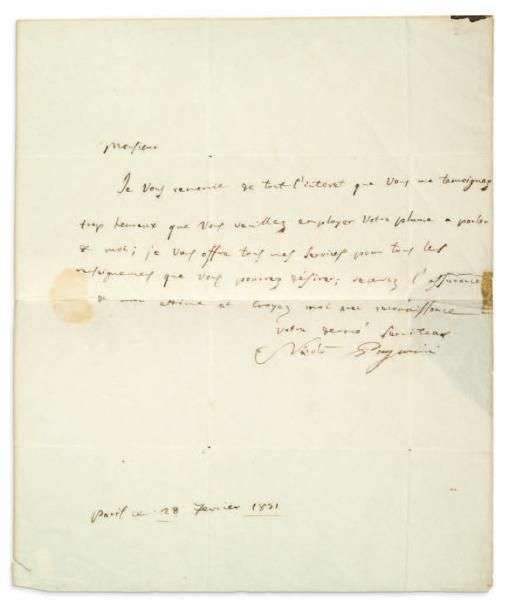 Monsieur
Je vous remercie de tout l'interet que vous me temoignez
trop heureux que vous veuillez employer votre plume a parler
de moi; je vous offre tous mes services pour tous les
renseignemens que vous pourrez désirer; recevez l'assurance
de mon estime et croyez moi avec reconnaissance
votre devoué serviteur
Nicolò Paganini
Paris ce 28 Fevrier 1831